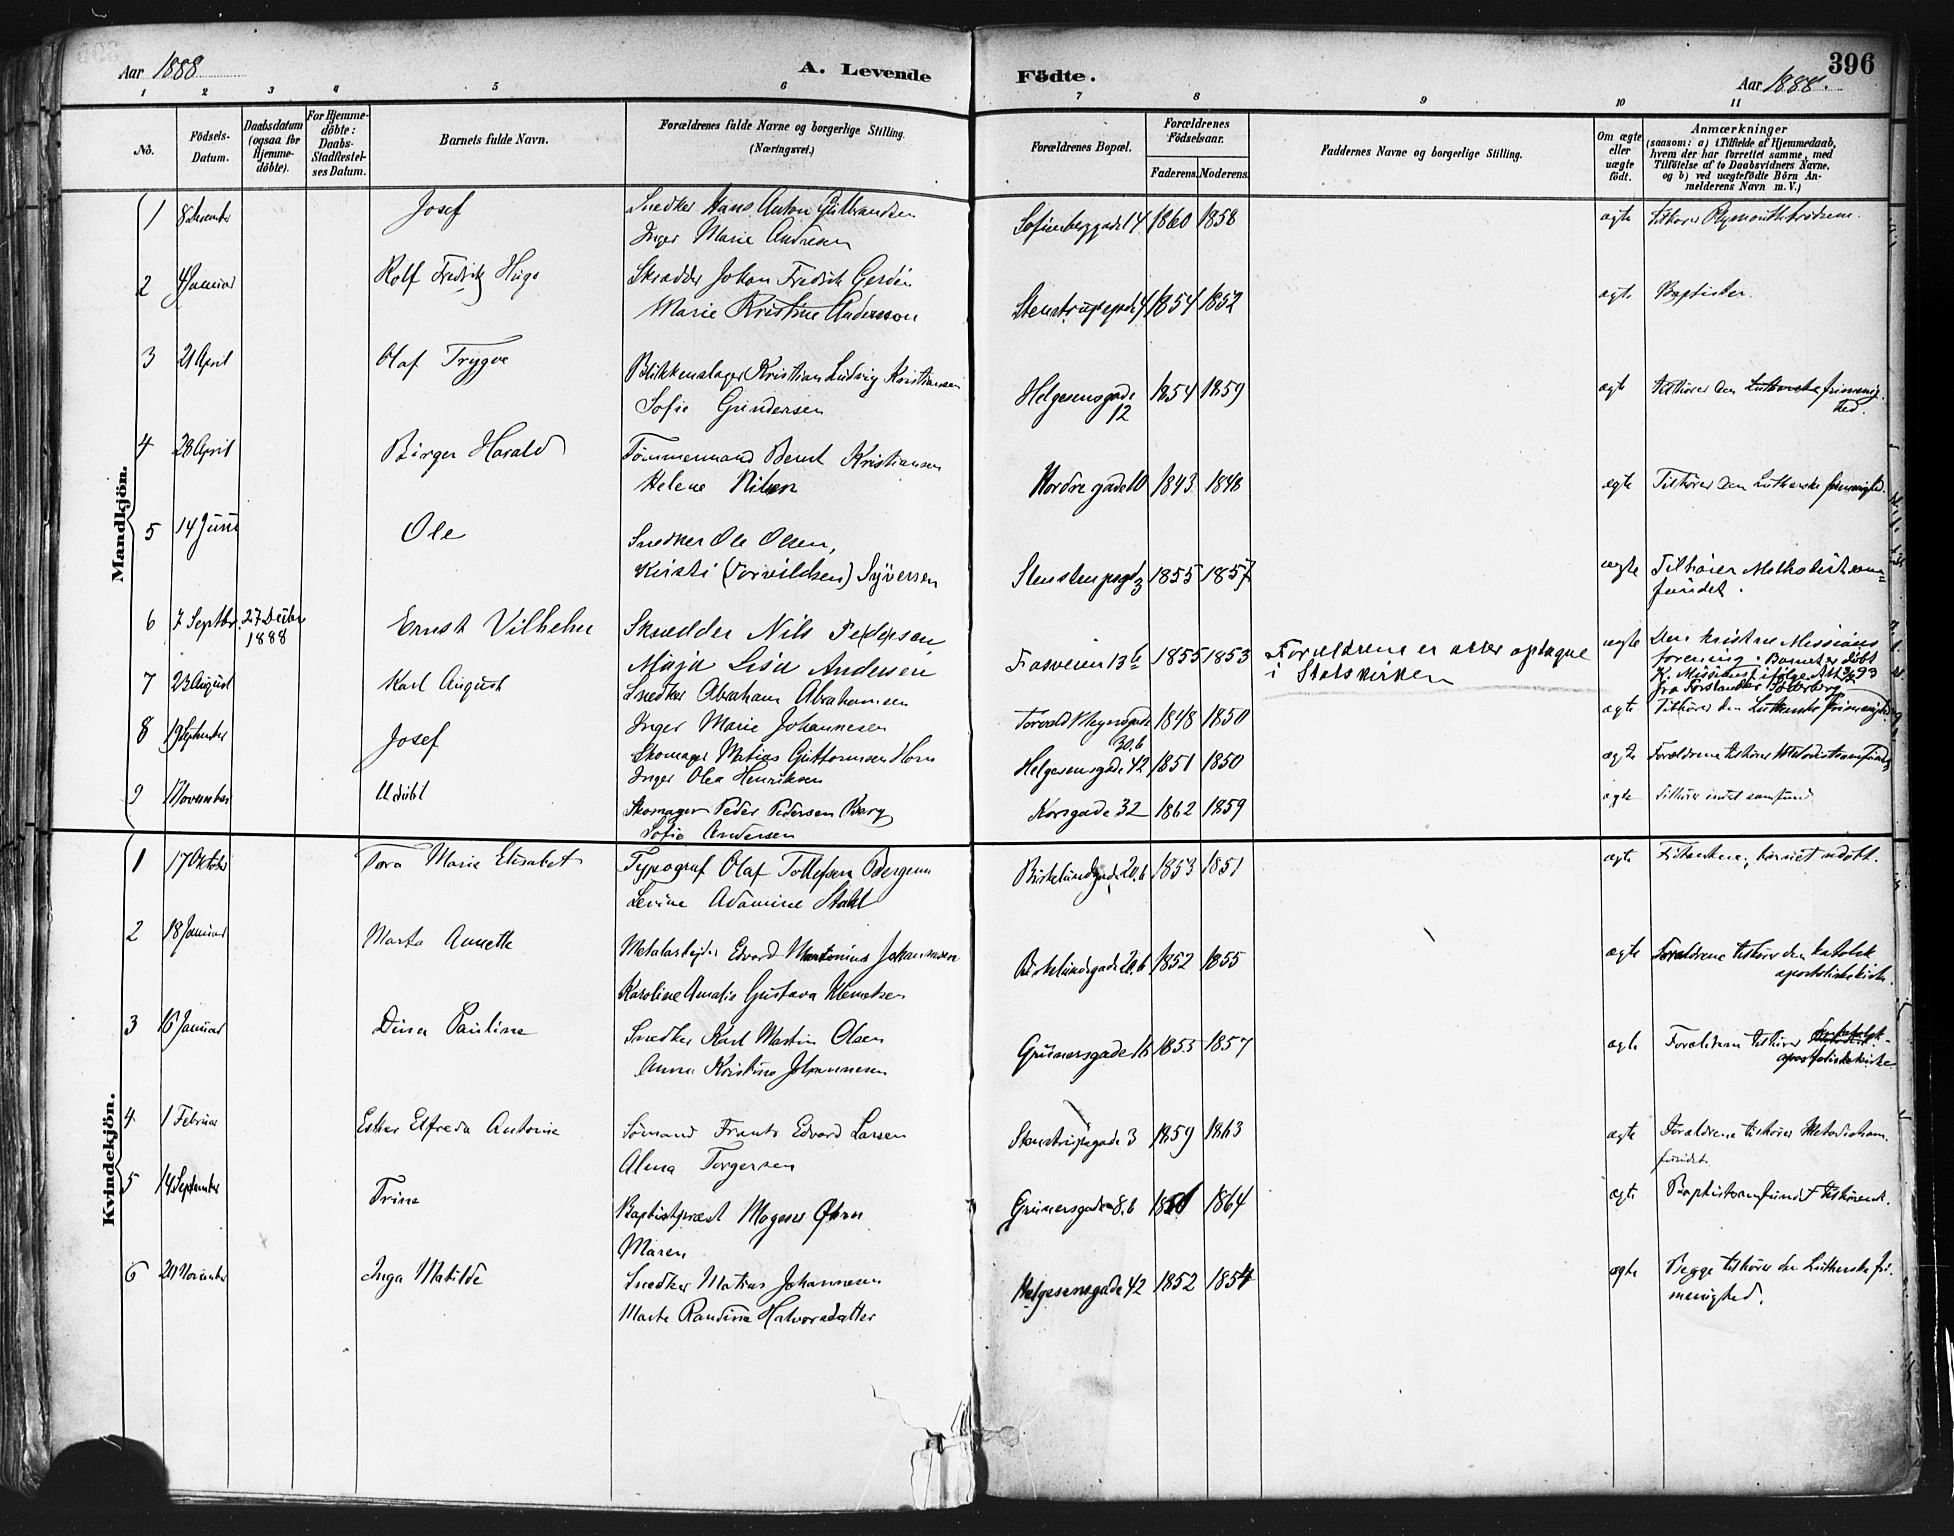 Aar 1888
A. Levende
Födte.
396
Aar 1888.
1 2 3 4 5 6 7 8 9 10 11
No.
Födsels-
Datum.
Daabsdatum
(ogsaa for
Hjemme-
döbte).
For Hjemme-
döbte:
Daabs-
Stadfæstel-
ses Datum.
Barnets fulde Navn.
Forældrenes fulde Navne og borgerlige Stilling.
(Næringsvei.)
Forældrenes Bopæl.
Forældrenes
Födselsaar.
Faderens. Moderens.
Faddernes Navne og borgerlige Stilling.
Om ægte
eller
uægte
födt.
Anmærkninger
(saasom: a) i Tilfælde af Hjemmedaab,
hvem der har forrettet samme, med
Tilföielse af to Daabsvidners Navne,
og b) ved uægtefödte Börn An-
melderens Navn m. V.)
Mandkjön.
1 8 December Josef Snedker Hans Anton Gulbrandsen
Inger Marie Andresen
Sofienberggade 14 1860 1858 ægte tilhører Plymouthbrødrene
2 4 Januar Rolf Fredrik Hugo Skrædder Johan Fredrik Gerdin
Marie Kristine Andersson
Stenstrupsgade 4 1854 1852 ægte Baptister.
3 21 April Olaf Trygve Blikkenslager Kristian Ludvig Kristiansen
Sofie Gundersen
Helgesensgade
12 1854 1859 ægte tilhører den Lutherske frimenig-
hed.
4 28 April Birger Harald Tømmermand Bernt Kristiansen
Helene Nilsen
Nordre gade 10 1843 1848 ægte Tilhører den Lutherske frimenighed.
5 14 Juni Ole Snedker Ole Olsen,
Kristi (Torvildsen) Syversen
3 1855 1857 ægte Tilhører Methodistsam=
fundet.
6 7 Septbr. 27 Decbr
1888 Ernst Vilhelm Skrædder Nils Pedersen,
Maja Lisa Andersen
Fosveien 13 b 1855 1853 Forældrene er atter optagne
i Statskirken
ægte Den kristne Missions
forening. Barnet er døbt
7 23 August Karl August Snedker Abraham Abrahamsen
Inger Marie Johannesen
Torvald Meyersgade
30.b 1848 1850 ægte Tilhører den Lutherske frimenighed
8 19 September Josef Skomager Matias Guttormsen Horn
Inger Olea Henriksen
Helgesensgade 42 1851 1850 ægte Forældrene tilhører Metodistsamfund
9 1 November Udøbt Skomager Peder Pedersen Berg
Sofie Andersen
Korsgade 32 1862 1859 ægte Tilhører intet samfund
Kvindekjön.
1 17 Oktober Tora Marie Elisabet Typograf Olaf Tollefsen Bergenn
Levine Adamine Stahl
Birkelundgade 20.b 1853 1851 ægte barnet udøbt.
2 18 Januar Marta Annette Metalarbejder Edvard Martinius Johannesen
Karoline Amalie Gustava Klemetsen
Birkelundsgade 20.b 1852 1855 ægte Forældrene tilhører den katolsk
apostoliske kirke.
3 16 Januar Dina Pauline Snedker Karl Martin Olsen
Anna Kristine Johannesen
Grünersgade 16 1853 1857 ægte Forældrene tilhører
apostoliske kirke
4 1 Februar Ester Elfreda Antonie Sømand Frants Edvard Larsen
Alma Torgersen
Stenstrupsgade 3 1859 1863 ægte Forældrene tilhører Metodistsam-
fundet.
5 14 September Trine Baptistpræst Mogens
Maren
Grünersgade 8.b 1864 ægte Baptistsamfundet tilhørende.
6 20 November Inga Matilde Snedker Matias Johannesen
Marte Randine Halvorsdatter
Helgesensgade 42 1852 1854 ægte Begge tilhører den Lutherske fri-
menighed.